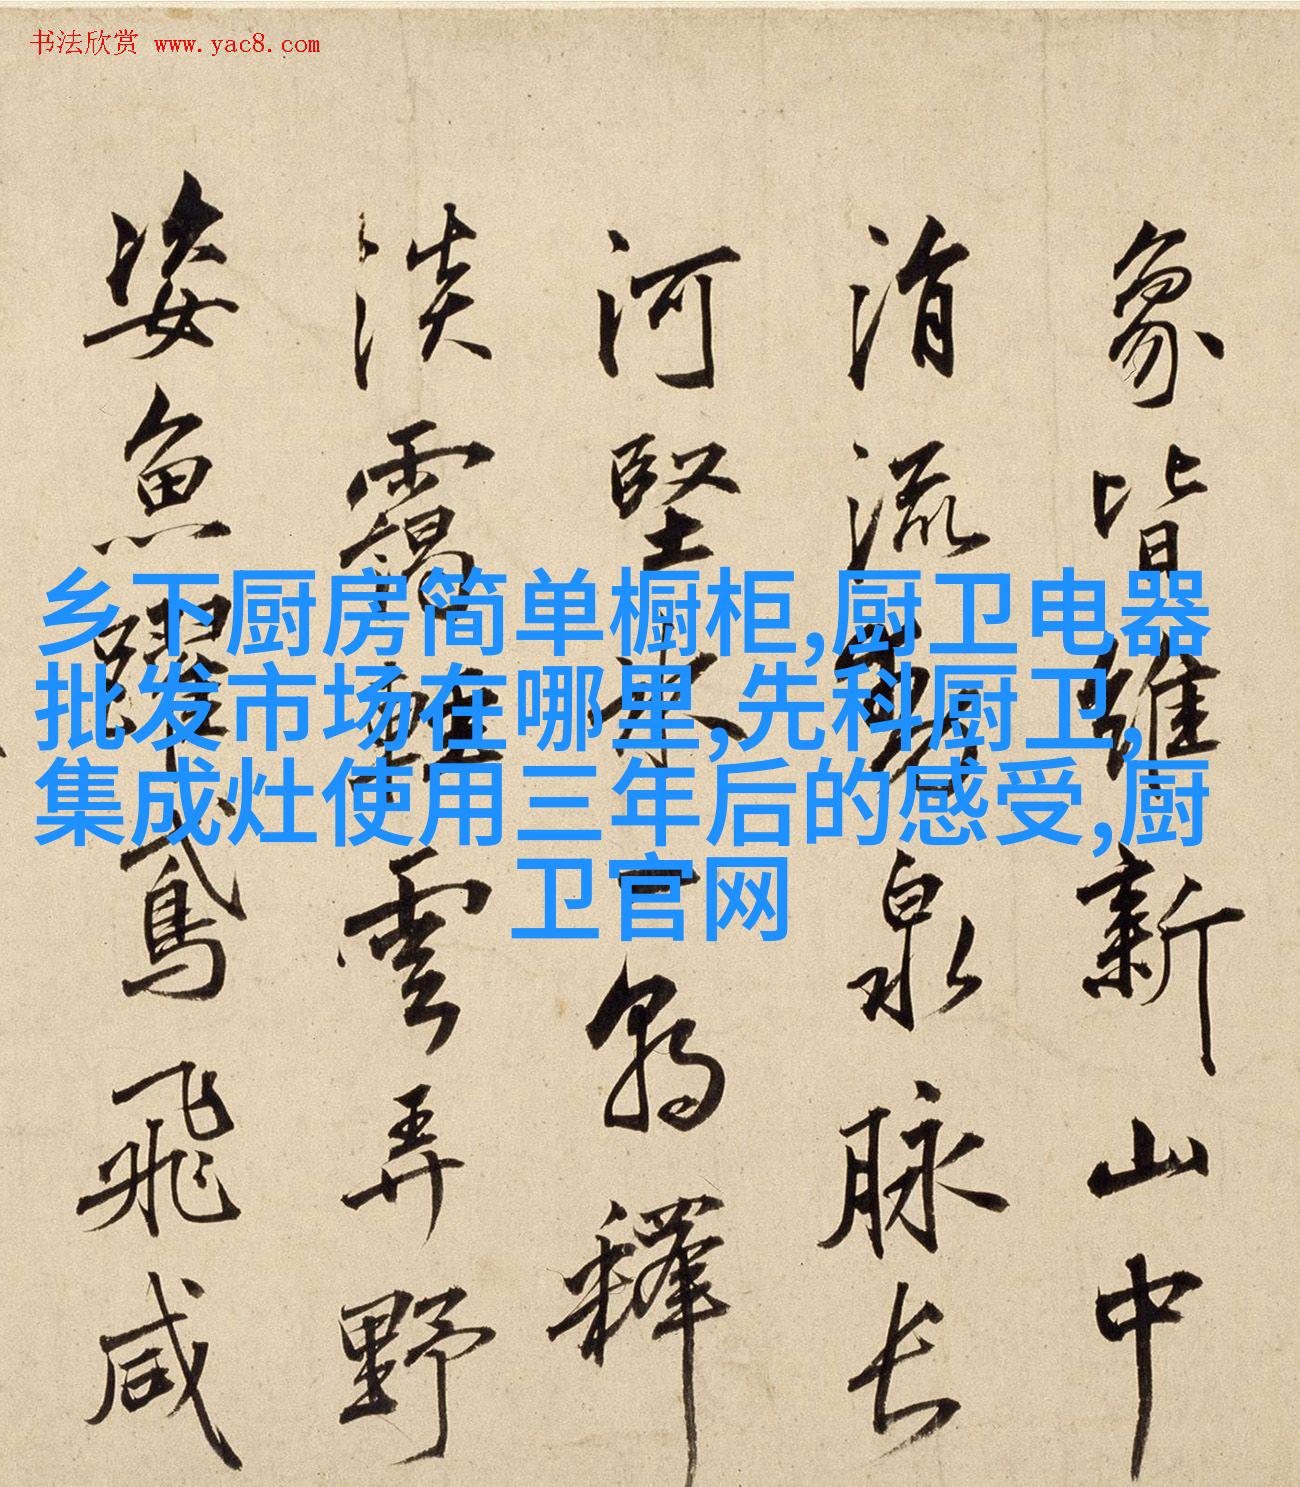 书法欣赏 www.yac8.com
乡下厨房简单橱柜,厨卫电器
批发市场在哪里,先科厨卫,
集成灶使用三年后的感受,厨
卫官网
象皆維新山中
消流動泉脉長
河堅冰一朝釋
淡靄輕雲弄野
姿魚躍鳶飛咸